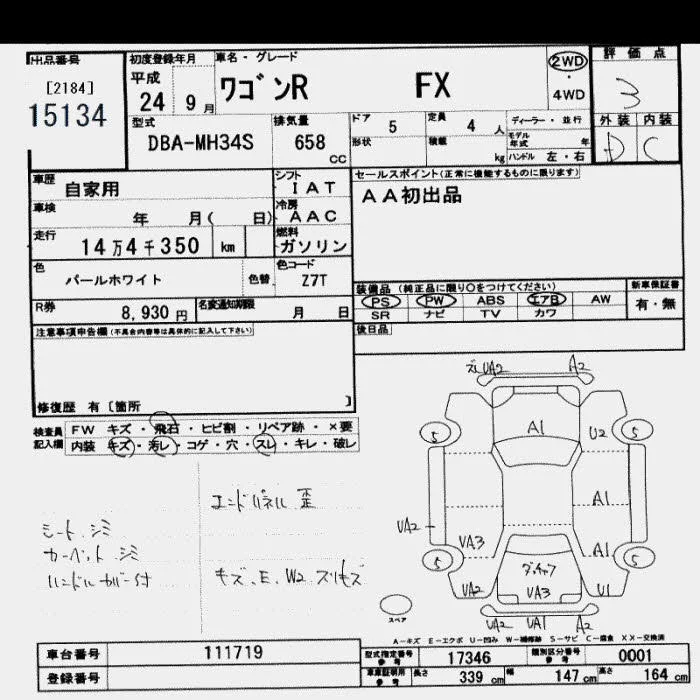 出品番号
[2184]
15134
初度登録年月
平成
24 9 月
車名・グレード
ワゴンR FX
2WD
・
4WD
評価点
3
外装 内装
D C
型式
DBA-MH34S
排気量
658
cc
ドア
5
定員
4 人
形状
積載
kg
ディーラー・並行
モデル年式 年
ハンドル 左・右
車歴
自家用
シフト
IAT
車検
年 月( 日)
冷房
AAC
走行
14万4千350 km
燃料
ガソリン
色
パールホワイト
色替
色コード
Z7T
R券
8,930 円
名変通知期限
月 日
セールスポイント(正常に機能するものに限ります)
AA初出品
装備品 (純正品に限り○をつけてください)
新車保証書
PS PW ABS エアB AW
有・無
SR ナビ TV カワ
後日品
注意事項申告欄(不具合内容等は具体的に記入して下さい)
修復歴 有〔箇所 〕
検査員
記入欄
FW キズ・飛石・ヒビ割・リペア跡・×要
内装 キズ・汚レ・コゲ・穴・スレ・キレ・破レ
エンドパネル 歪
シート シミ
カーペット シミ
ハンドルカバー付
キズ、E、W2 スリキズ
ズレ UA2 A2
5 A1 U2 5
A1
UA2
UA3 A1
5 ダッチャフ 5
UA2 UA3 U1
UA2 UA1 A2
スペア
A－キズ E－エクボ U－凹み W－補修跡 S－サビ C－腐食 XX－交換済
車台番号 111719
登録番号
型式指定番号
参考
17346
類別区分番号
参考
0001
車庫証明用
参考
長さ 339 cm 幅 147 cm 高さ 164 cm